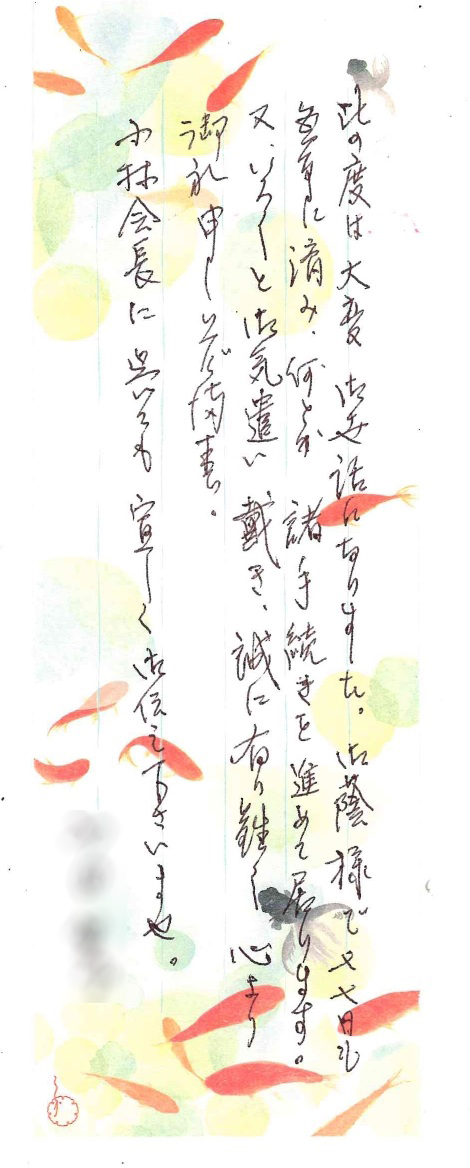 此の度は大変御世話になりました。御蔭様で七七日も
無事に済み、何とか諸手続きを進めて居ります。
又、いろいろと御気遣い戴き、誠に有り難く心より
御礼申し上げます。
小林会長に呉々も宜しく御伝え下さいませ。